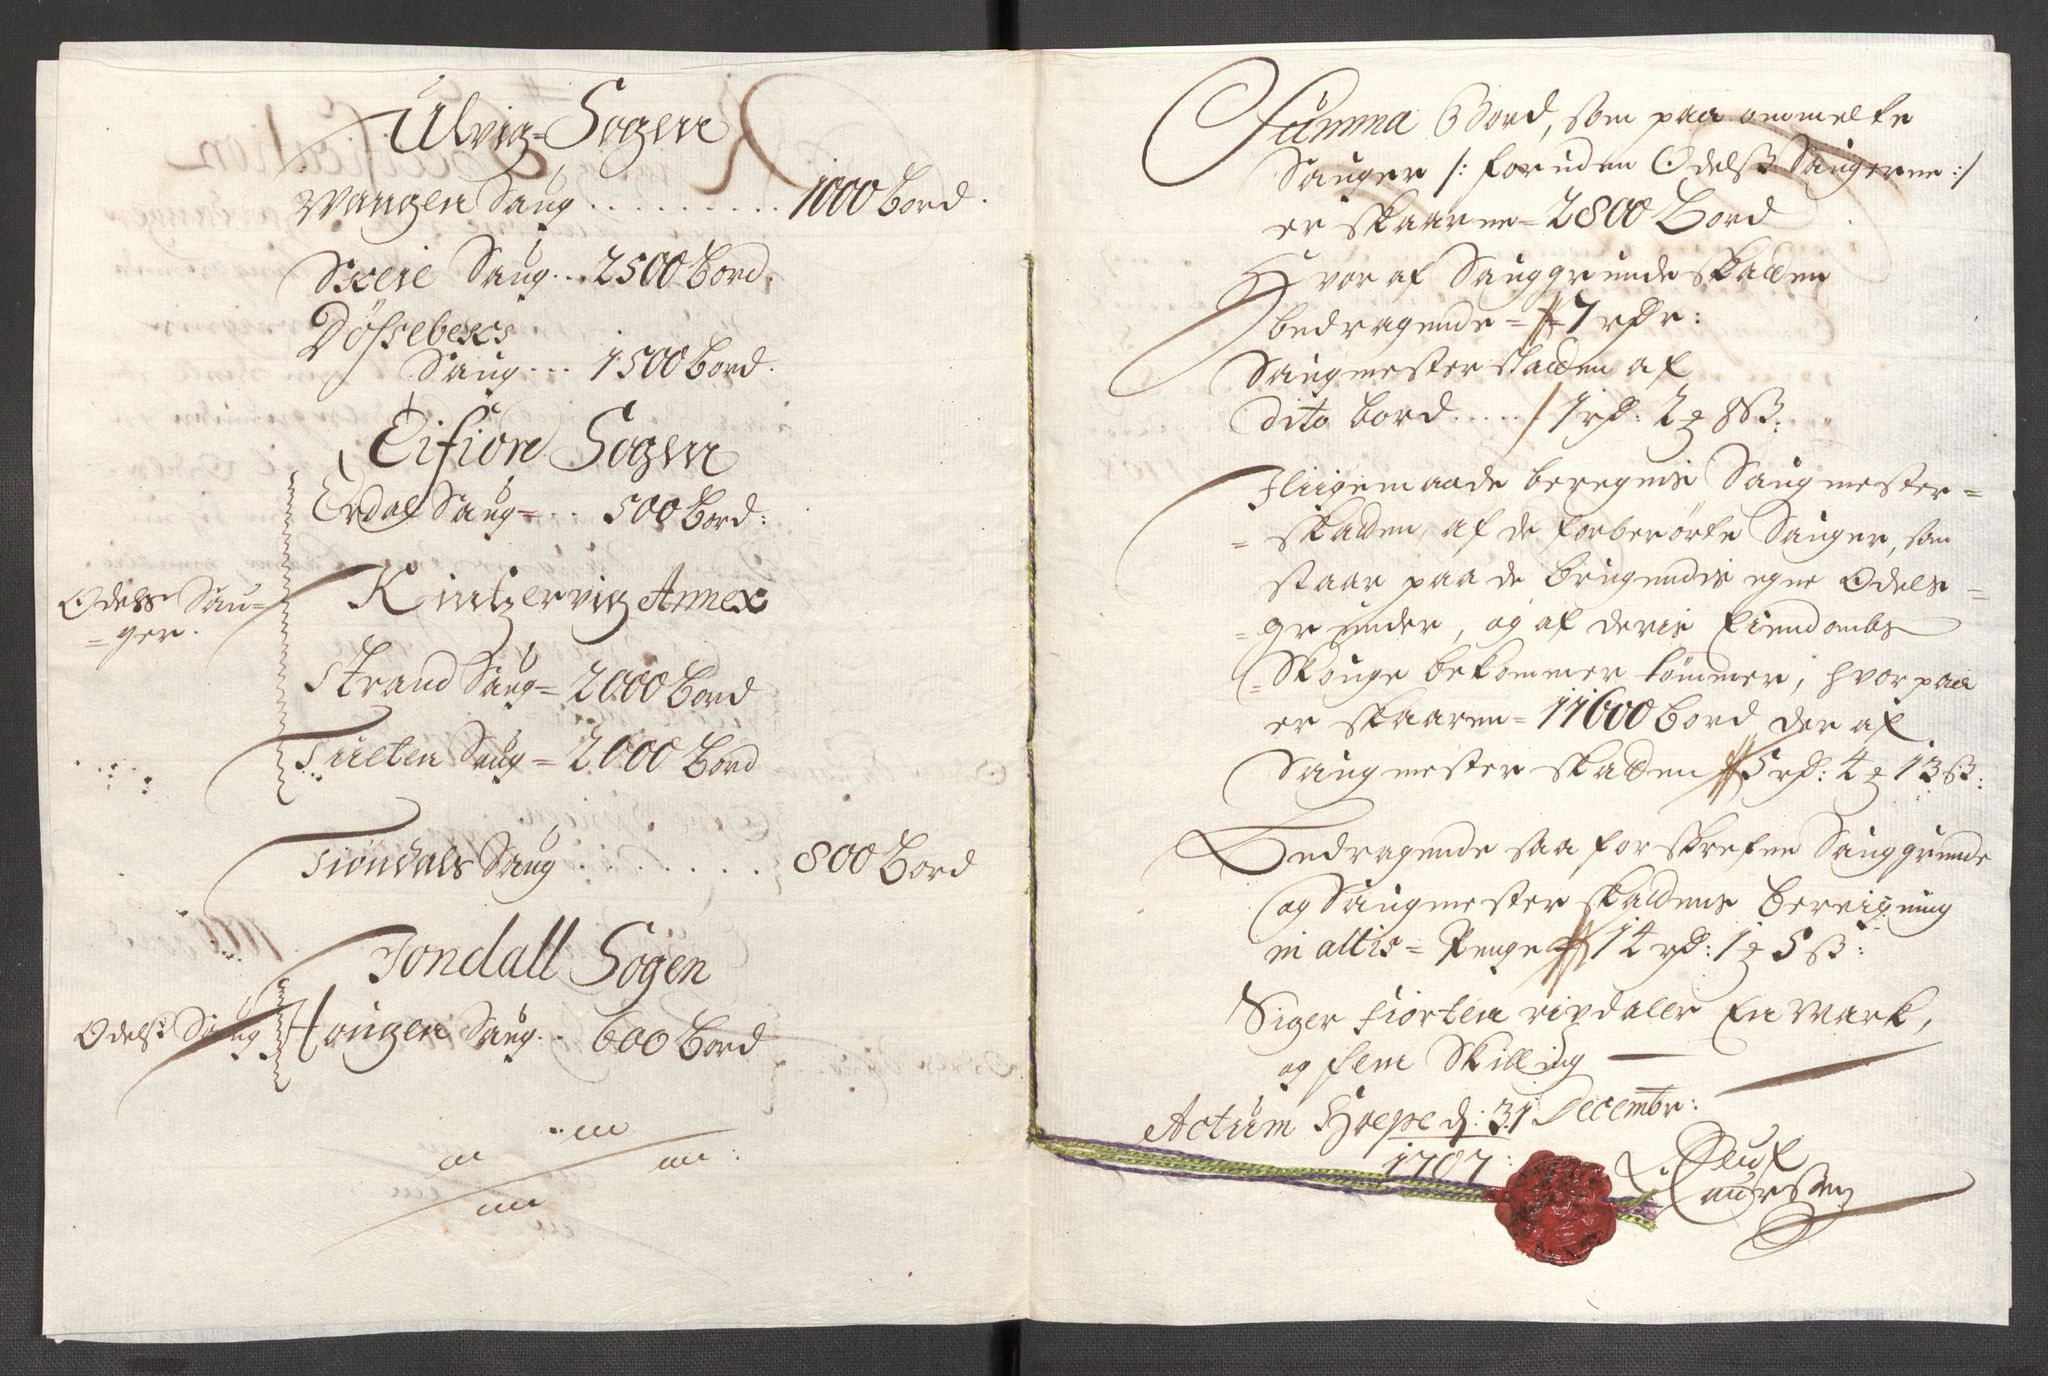 Ulvig-Sogen
Wangen Saug . . . . . . . . . 1000 Bord.
Sxeie Saug... 2500 Bord.
Døsselbechs
Saug... 1500 Bord.
Eifiord Sogen
Erdal Saug=.. 500 Bord:
Kintzervig Annex
Odels Sau=
=ger.
Strand Saug= 2000 Bord
Tueten Saug= 2000 Bord
Tiøndals Saug . . . . . . . 800 Bord
Jondall Sogen
Odels Saug Hougen Saug.. 600 Bord
Summa Bord, som paa ommelte
Sauger /: foruden Odelss Saugerne :/
er skaarne= 2800 Bord
Hvor af Sauggrunde skatten
bedragende = 7 rdr:
Saugmester skatten af
dito bord..... 1 rd: 2 ₰ 8 ß:
Iligemaade beregnis Saugmester=
=skatten, af de forberørte Sauger, som
staar paa de brugendis egne Odels=
=grunder, og af deris Eiendombs
=Skouge bekommer tømmer, hvorpaa
er skaaren= 11600 Bord der af
Saugmester skatten 5 rd: 4 ₰ 13 ß:
Bedragende saa forskrefne Sauggrunde
og Saugmester skattens Bereigning
in altis= Penge 14 rd: 1 ₰ 5 ß:
Siger Fiorten rixdaler En Mark,
og fem Skilling
Actum Hoepe d: 31 Decembr:
1707:
Oluf
Laurssen